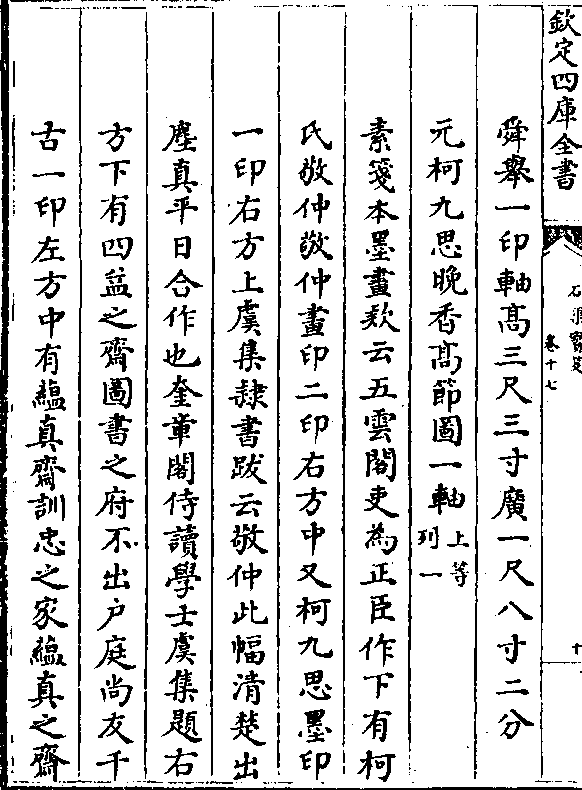 欽定四庫全書
石渠寳笈
卷十七
十
舜舉一印軸髙三尺三寸廣一尺八寸二分
元柯九思晚香髙節圖一軸上等
列一
素箋本墨畫欵云五雲閣吏為正臣作下有柯
氏敬仲敬仲畫印二印右方中又柯九思墨印
一印右方上虞集隷書跋云敬仲此幅清楚出
塵真平日合作也奎章閣侍讀學士虞集題右
方下有四益之齋圖書之府不出户庭尚友千
古一印左方中有蘊真齋訓忠之家蘊真之齋